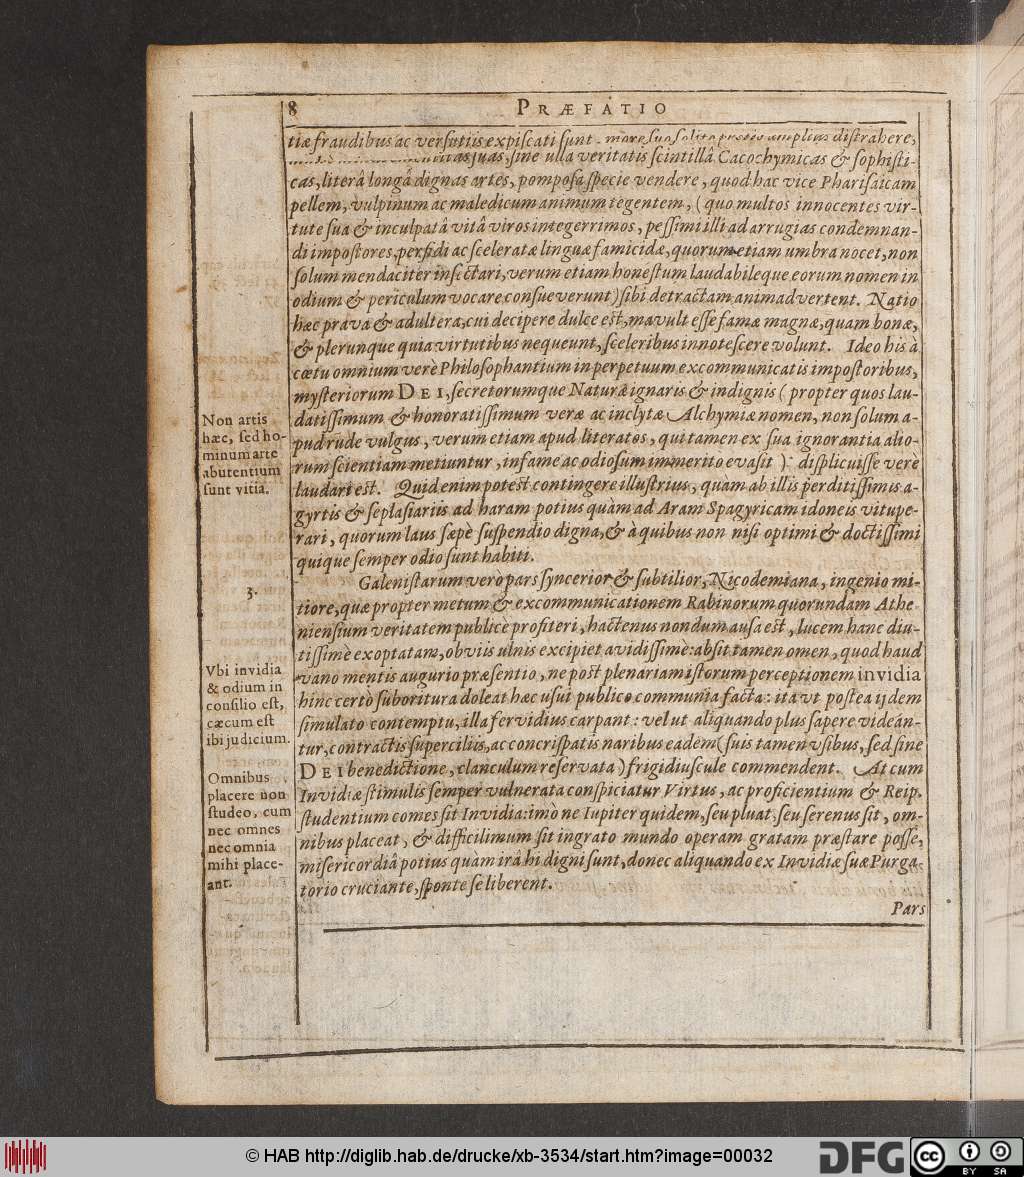 8
PRÆFATIO
tiæ fraudibus ac versutiis expiscati sunt, more suo solito pretio amplius distrahere,
suas, sine ulla veritatis scintillâ Cacochymicas & sophisti-
cas, literâ longâ dignas artes, pomposa specie vendere, quod hac vice Pharisaicam
pellem, vulpinum ac maledicum animum tegentem, (quo multos innocentes vir-
tute sua & inculpatâ vitâ viros integerrimos, pessimi illi ad arrugias condemnan-
di impostores, perfidi ac sceleratæ linguæ famicidæ, quorum etiam umbra nocet, non
solum mendaciter insectari, verum etiam honestum laudabileque eorum nomen in
odium & periculum vocare consueverunt) sibi detractam animadvertent. Natio
hæc prava & adultera, cui decipere dulce est, mavult esse famæ magnæ, quam bonæ,
& plerunque quia virtutibus nequeunt, sceleribus innotescere volunt. Ideo his à
cœtu omnium verè Philosophantium in perpetuum excommunicatis impostoribus,
mysteriorum DEI, secretorumque Naturæ ignaris & indignis (propter quos lau-
datissimum & honoratissimum veræ ac inclytæ Alchymiæ nomen, non solum a-
pud rude vulgus, verum etiam apud literatos, qui tamen ex sua ignorantia alio-
rum scientiam metiuntur, infame ac odiosum immerito evasit) displicuisse verè
laudari est. Quid enim potest contingere illustrius, quàm ab illis perditissimis a-
gyrtis & seplasiariis ad haram potius quàm ad Aram Spagyricam idoneis vitupe-
rari, quorum laus sæpè suspendio digna, & à quibus non nisi optimi & doctissimi
quique semper odio sunt habiti.
Galenistarum vero pars syncerior & subtilior, Nicodemiana, ingenio mi-
tiore, quæ propter metum & excommunicationem Rabinorum quorundam Athe-
niensium veritatem publicè profiteri, hactenus nondum ausa est, lucem hanc diu-
tissimè exoptatam, obviis ulnis excipiet avidissimè: absit tamen omen, quod haud
vano mentis augurio præsentio, ne post plenariam istorum perceptionem invidia
hinc certò suboritura doleat hæc usui publico communia facta: ita vt postea ijdem
simulato contemptu, illa fervidius carpant: vel ut aliquando plus sapere videan-
tur, contractis superciliis, ac concrispatis naribus eadem (suis tamen vsibus, sed sine
DEI benedictione, clanculum reservata) frigidiuscule commendent. At cum
Invidiæ stimulis semper vulnerata conspiciatur Virtus, ac proficientium & Reip.
studentium comes sit Invidia: imò ne Iupiter quidem, seu pluat, seu serenus sit, om-
nibus placeat, & difficilimum sit ingrato mundo operam gratam præstare posse,
misericordiâ potius quàm irâ hi digni sunt, donec aliquando ex Invidiæ suæ Purga-
torio cruciante, sponte se liberent.
Pars
Non artis
hæc, sed ho-
minum arte
abutentium
sunt vitia.
3.
Vbi invidia
& odium in
consilio est,
cæcum est
ibi judicium.
Omnibus
placere non
studeo, cum
nec omnes
nec omnia
mihi place-
ant.
© HAB http://diglib.hab.de/drucke/xb-3534/start.htm?image=00032
DFG
cc
BY SA